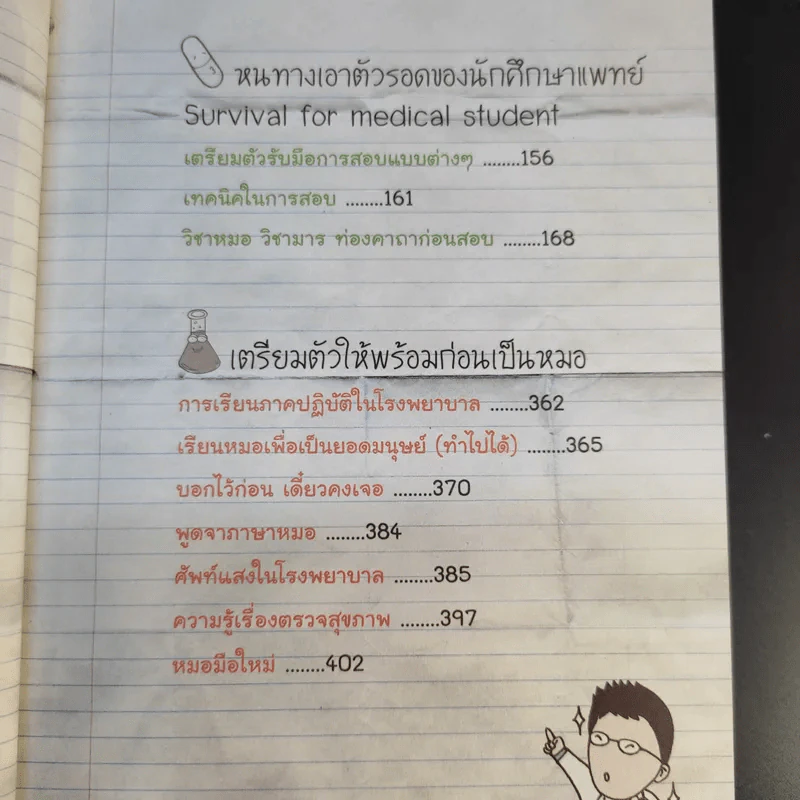 หนทางเอาตัวรอดของนักศึกษาแพทย์
Survival for medical student
เตรียมตัวรับมือการสอบแบบต่างๆ ........156
เทคนิคในการสอบ ........161
วิชาหมอ วิชามาร ท่องคาถาก่อนสอบ ........168
เตรียมตัวให้พร้อมก่อนเป็นหมอ
การเรียนภาคปฏิบัติในโรงพยาบาล ........362
เรียนหมอเพื่อเป็นยอดมนุษย์ (ทำไปได้) ........365
บอกไว้ก่อน เดี๋ยวคงเจอ ........370
พูดจาภาษาหมอ ........384
ศัพท์แสงในโรงพยาบาล ........385
ความรู้เรื่องตรวจสุขภาพ ........397
หมอมือใหม่ ........402